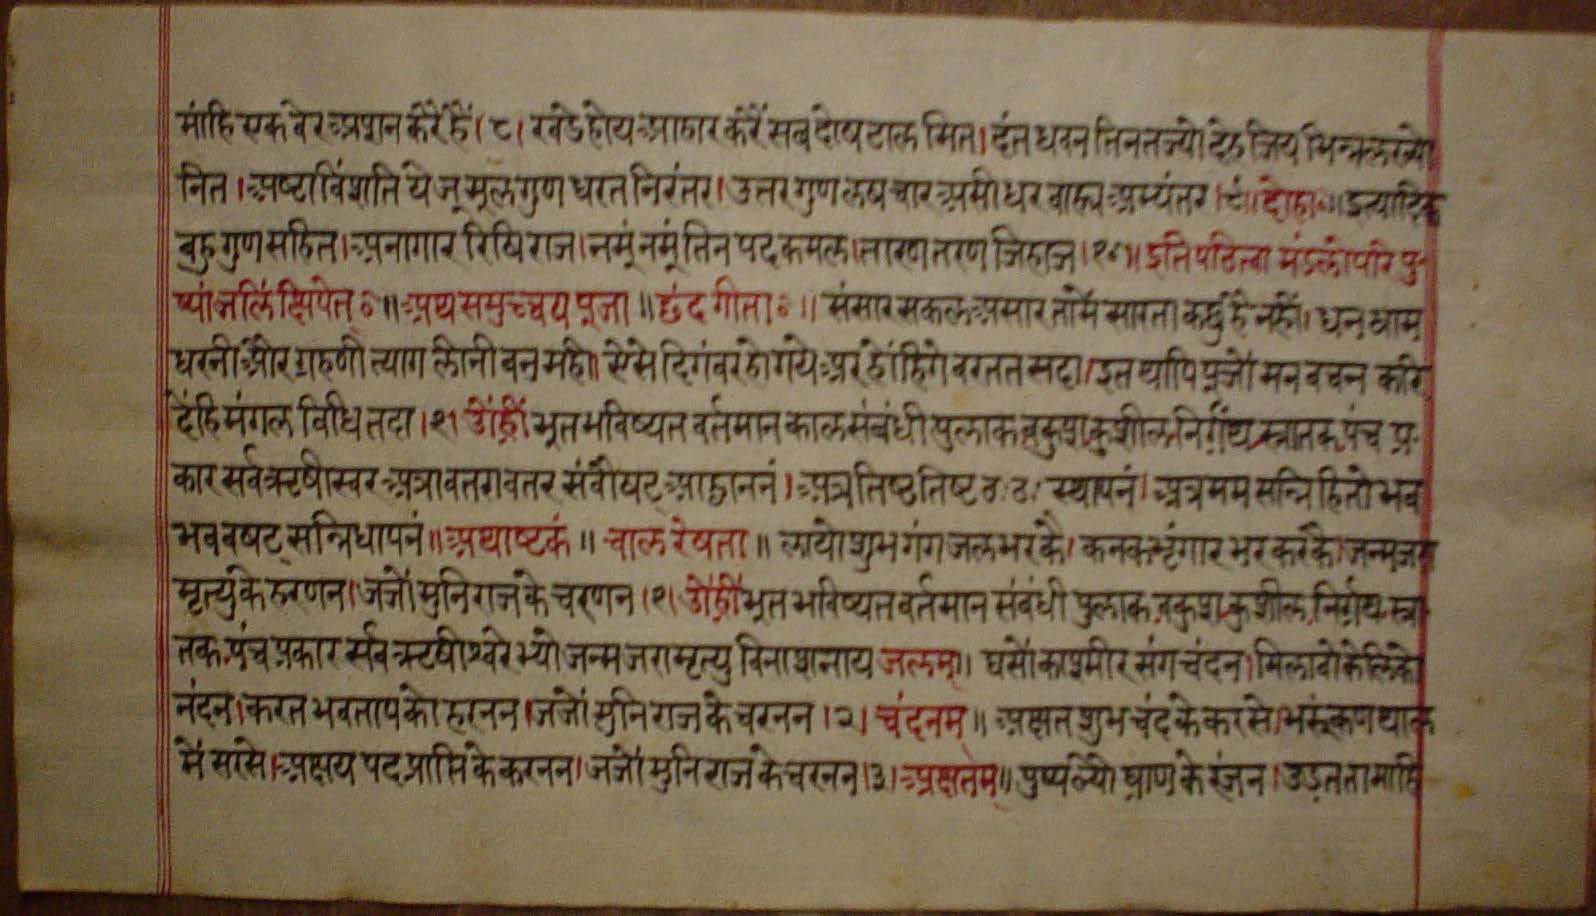 मांहि एक वेर अशन करें हैं।८। खडे होय आहार करें सब दोष टाल मित। दंत धवन तिन तज्यो देह जिय भिन्न लख्यो
नित। अष्टाविंशति ये जू मूलगुण धरत निरंतर। उत्तर गुण लष चार असी धर वाह्य अभ्यंतर।९। दोहा॰॥ इत्यादिक
बहु गुण सहित। अनागार रिषिराज। नमूं नमूं तिन पद कमल। तारण तरण जिहाज।१०॥ इति पठित्वा मंडलोपरि पु-
ष्पांजलिं क्षिपेत्॰॥ अथ समुच्चय पूजा॥ छंद गीता॰॥ संसार सकल असार तामें सारता कछु है नहीं। धन धाम
धरनी और ग्रहणी त्याग लीनी वन मही। ऐसे दिगंवर हो गये अर होंहिगे वरतत सदा। इत थापि पूजों मन वचन करि
देंहि मंगल विधि तदा।१। ॐ ह्रीं भूत भविष्यत वर्तमान काल संबंधी पुलाक वकुश कुशील निर्ग्रंथ स्नातक पंच प्र-
कार सर्व ऋषीस्वर अत्रावतरावतर संवौषट् आह्वाननं। अत्र तिष्ठ तिष्ट ठः ठः स्थापनं। अत्र मम सन्निहितो भव
भव वषट् सन्निधापनं॥ अथाष्टकं॥ चाल रेषता॥ लायो शुभ गंग जल भर कै। कनक भृंगार भर कर कै। जन्म जरा
मृत्यु के हरणन। जजों मुनिराज के चरणन।१। ॐ ह्रीं भूत भविष्यत वर्तमान संबंधी पुलाक वकुश कुशील निर्ग्रंथ स्ना
तक पंच प्रकार सर्व ऋषीश्वरेभ्यो जन्म जरा मृत्यु विनाशनाय जलम्॥ घसों काश्मीर संग चंदन। मिलावो केलिको
नंदन। करत भवताप को हरनन। जजों मुनिराज के चरनन।२। चंदनम्॥ अक्षत शुभ चंद के करसे। भरूं कण थाल
में सरसे। अक्षय पद प्राप्ति के करनन। जजों मुनिराज के चरनन।३। अक्षतम्॥ पुष्प ल्यों घ्राण के रंजन। उड़त ता मांहि